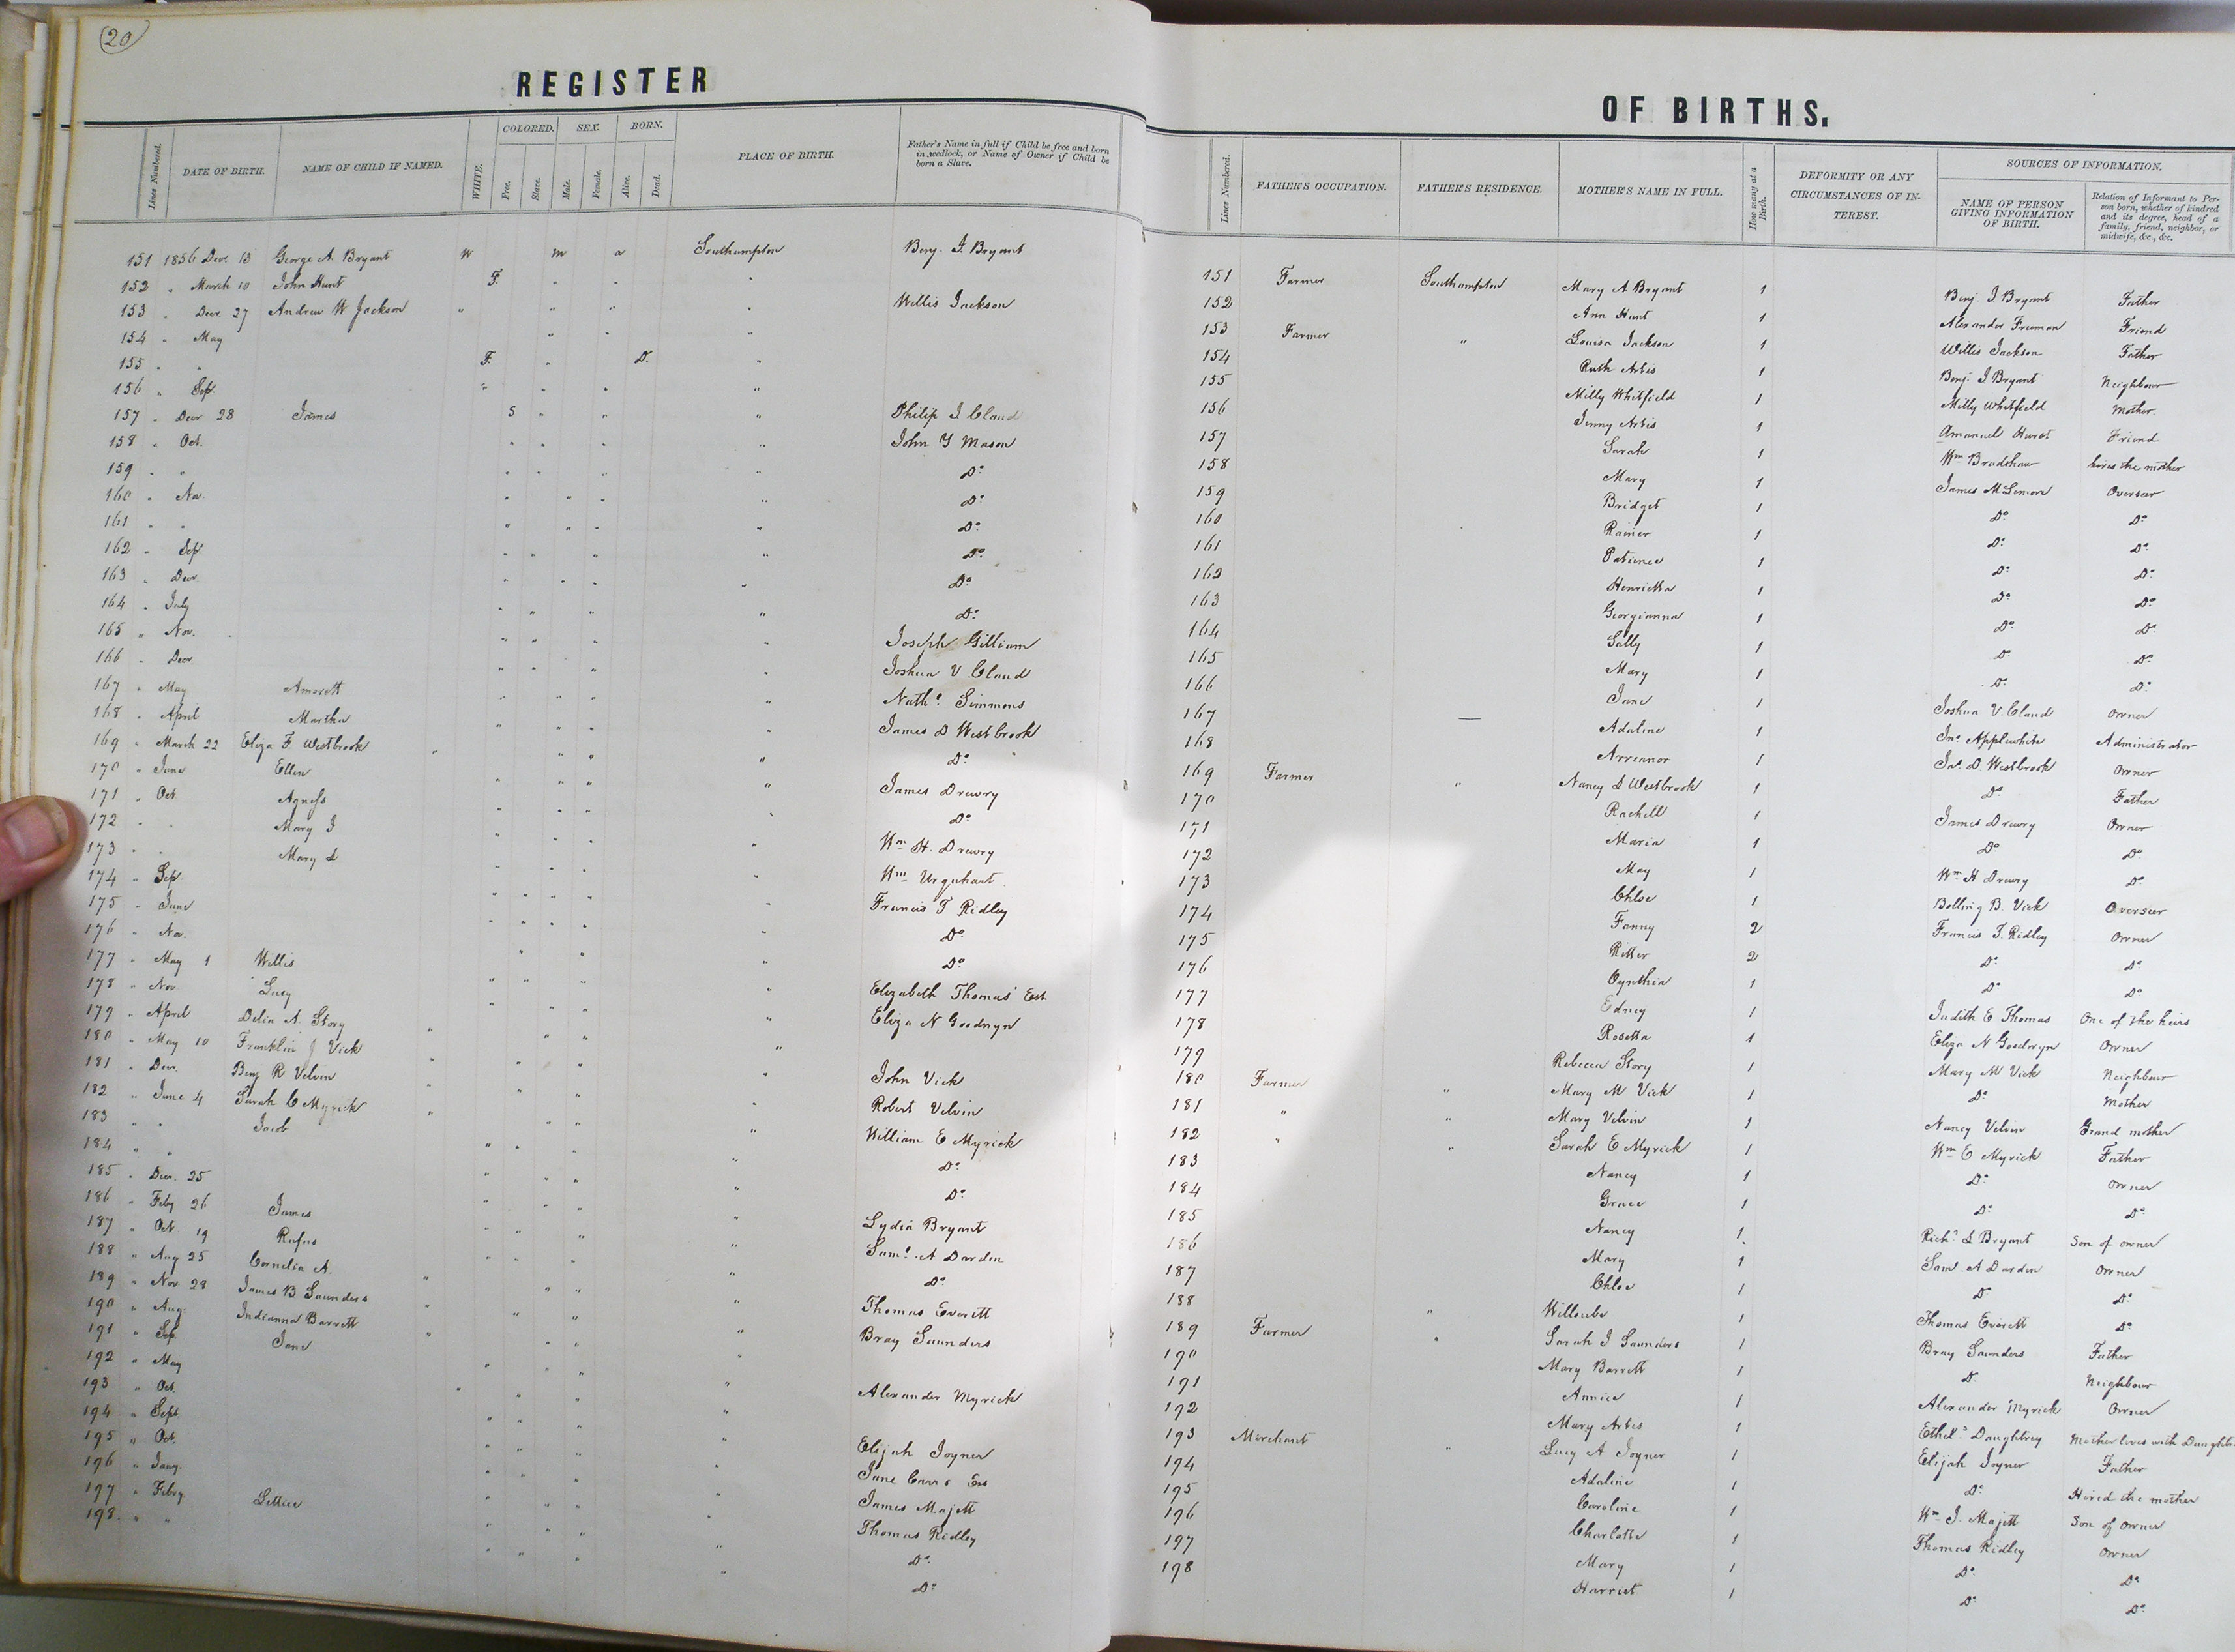 20
REGISTER
Lines Numbered. DATE OF BIRTH. NAME OF CHILD IF NAMED. WHITE. COLORED. Free. Slave. SEX. Male. Female. BORN. Alive. Dead. PLACE OF BIRTH. Father's Name in full if Child be free and born in wedlock, or Name of Owner if Child be born a Slave.
151 1856 Decr. 13 George A. Bryant W m a Southampton Benj. J. Bryant
152 " March 10 John Hunt F. " " "
153 " Decr 27 Andrew W Jackson " " " " Willis Jackson
154 " May " " "
155 " " F. " D. "
156 " Sep. " " " "
157 " Decr 28 James S " " " Philip J. Claud
158 " Oct. " " " " John Y Mason
159 " " " " " " Do
160 " Nov. " " " " Do
161 " " " " " " Do
162 " Sep. " " " " Do
163 " Decr. " " " " Do
164 " July " " " " Do
165 " Nov. " " " " Joseph Gilliam
166 " Decr " " " " Joshua V. Claud
167 " May Amarett " " " " Nathl. Simmons
168 " April Martha " " " " James D Westbrook
169 " March 22 Eliza F. Westbrook " " " " Do
170 " June Ellen " " " " James Drewry
171 " Oct. Agness " " " " Do
172 " " Mary J " " " " Wm H. Drewry
173 " " Mary L " " " " Wm Urquhart
174 " Sep. " " " " Francis T Ridley
175 " June " " " " Do
176 " Nov. " " " Do
177 " May 1 Willis " " " " Elizabeth Thomas' Est.
178 " Nov Lucy " " " " Eliza N Goodwyn
179 " April Delia A. Story " " " "
180 " May 10 Franklin J Vick " " " " John Vick
181 " Decr. Benj R Velvin " " " " Robert Velvin
182 " June 4 Sarah C Myrick " " " " William E Myrick
183 " " Jacob " " " " Do
184 " " " " " " Do
185 " Decr. 25 " " " " Lydia Bryant
186 " Feby 26 James " " " " Saml. A Darden
187 " Oct. 19 Rufus " " " " Do
188 " Aug 25 Cornelia A. " " " " Thomas Everitt
189 " Nov 28 James B Saunders " " " " Bray Saunders
190 " Aug. Indianna Barrett " " " "
191 " Sep. Jane " " " " Alexander Myrick
192 " May " " " "
193 " Oct. " " " " Elijah Joyner
194 " Sept. " " " " Jane Carr's Est
195 " Oct. " " " " James Majett
196 " Jany. " " " " Thomas Ridley
197 " Feby. Lettice " " " " Do
198. " " " " " " Do
OF BIRTHS.
Lines Numbered. FATHER'S OCCUPATION. FATHER'S RESIDENCE. MOTHER'S NAME IN FULL. How many at a Birth. DEFORMITY OR ANY CIRCUMSTANCES OF INTEREST. SOURCES OF INFORMATION. NAME OF PERSON GIVING INFORMATION OF BIRTH. Relation of Informant to Person born, whether of kindred and its degree, head of a family, friend, neighbor, or midwife, &c., &c.
151 Farmer Southampton Mary A Bryant 1 Benj. J Bryant Father
152 Ann Hunt 1 Alexander Freeman Friend
153 Farmer " Louisa Jackson 1 Willis Jackson Father
154 Ruth Artis 1 Benj. J Bryant Neighbour
155 Milly Whitfield 1 Milly Whitfield Mother.
156 Jenny Artis 1 Amanuel Hurst Friend
157 Sarah 1 Wm Bradshaw hires the mother
158 Mary 1 James McLemore Overseer
159 Bridget 1 Do Do
160 Rainer 1 Do Do
161 Patience 1 Do Do
162 Henrietta 1 Do Do
163 Georgianna 1 Do Do
164 Sally 1 Do Do
165 Mary 1 Do Do
166 Jane 1 Joshua V. Claud Owner
167 — Adaline 1 Jno. Applewhite Administrator
168 Arreanor 1 Jas. D. Westbrook Owner
169 Farmer " Nancy L Westbrook 1 Do Father
170 Rachell 1 James Drewry Owner
171 Maria 1 Do Do
172 May 1 Wm H Drewry Do
173 Chloe 1 Bolling B. Vick Overseer
174 Fanny 2 Francis T. Ridley Owner
175 Ritter 2 Do Do
176 Cynthia 1 Do Do
177 Edney 1 Judith E Thomas One of the heirs
178 Rosetta 1 Eliza N Goodwyn Owner
179 Rebecca Story 1 Mary M Vick Neighbour
180 Farmer " Mary M Vick 1 Do Mother
181 " " Mary Velvin 1 Nancy Velvin Grand mother
182 " " Sarah E Myrick 1 Wm E Myrick Father
183 Nancy 1 Do Owner
184 Grace 1 Do Do
185 Nancy 1 Richd. L Bryant Son of owner
186 Mary 1 Saml. A Darden Owner
187 Chloe 1 Do Do
188 " Willoube 1 Thomas Everett Do
189 Farmer " Sarah J Saunders 1 Bray Saunders Father
190 Mary Barrett 1 Do Neighbour
191 Annica 1 Alexander Myrick Owner
192 Mary Artis 1 Etheld. Daughtrey Mother lives with Daughtr
193 Merchant " Lucy A Joyner 1 Elijah Joyner Father
194 Adaline 1 Do Hired the mother
195 Caroline 1 Wm J. Majett Son of owner
196 Charlotte 1 Thomas Ridley Owner
197 Mary 1 Do Do
198 Harriet 1 Do Do